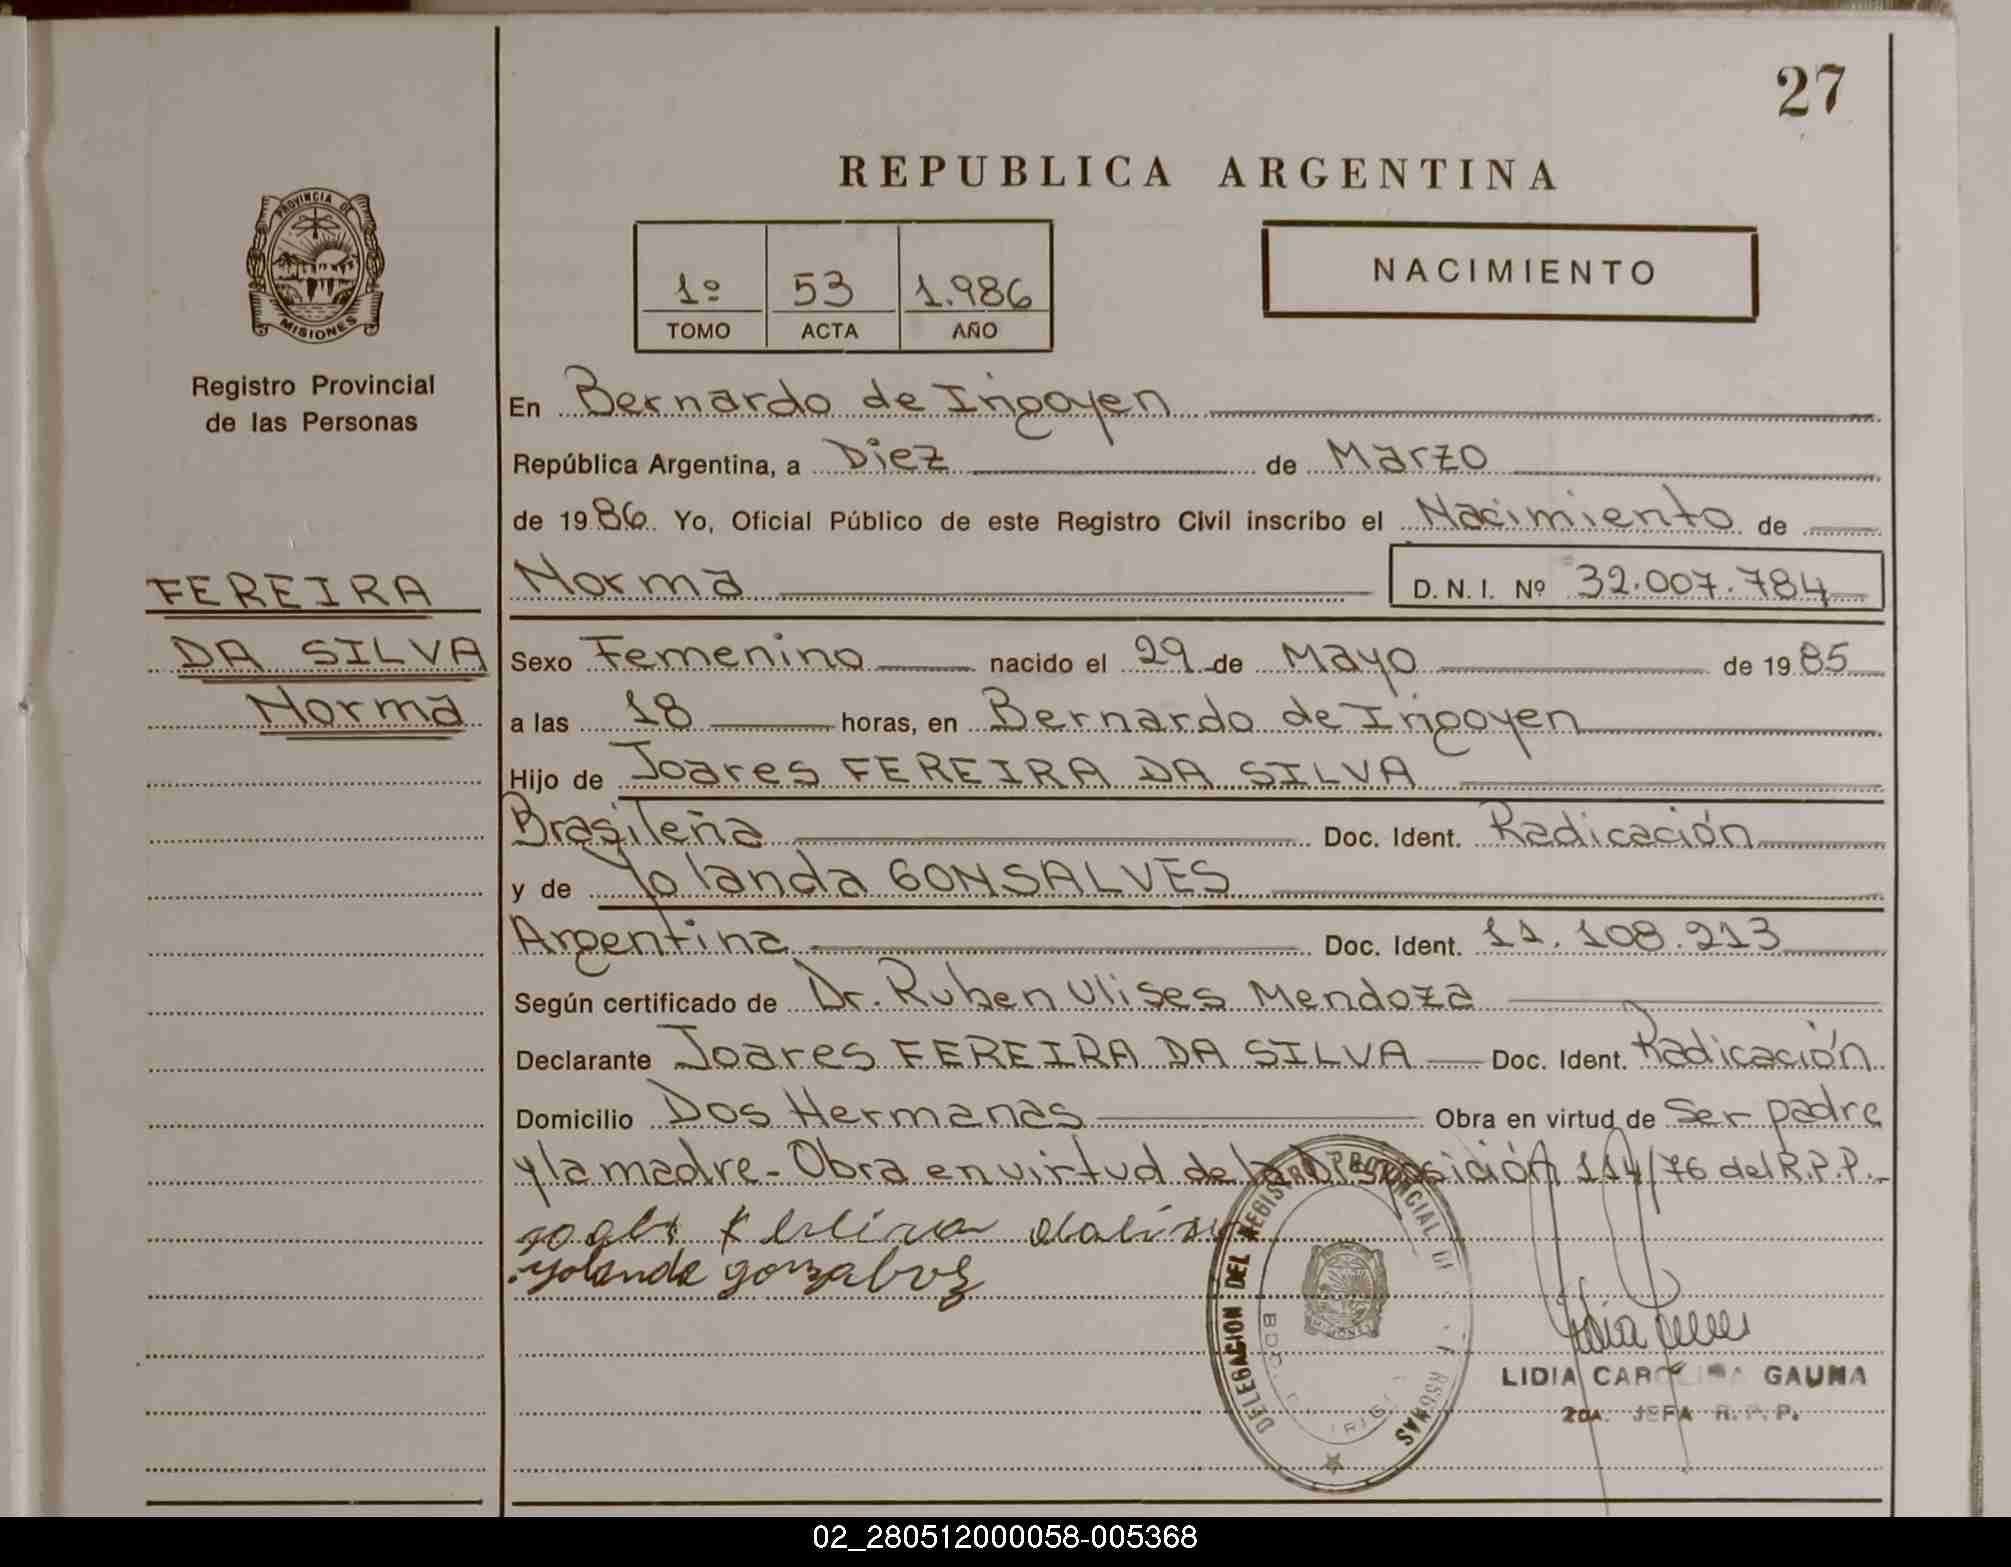 27
REPUBLICA ARGENTINA
PROVINCIA DE
MISIONES
1º 53 1.986
TOMO ACTA AÑO
NACIMIENTO
Registro Provincial
de las Personas
FEREIRA
DA SILVA
Norma
En Bernardo de Irigoyen
República Argentina, a Diez de Marzo
de 1986. Yo, Oficial Público de este Registro Civil inscribo el Nacimiento de
Norma D.N.I. Nº 32.007.784
Sexo Femenino nacido el 29 de Mayo de 1985
a las 18 horas, en Bernardo de Irigoyen
Hijo de Joares FEREIRA DA SILVA
Brasileña Doc. Ident. Radicación
y de Yolanda GONSALVES
Argentina Doc. Ident. 11.108.213
Según certificado de Dr. Ruben Ulises Mendoza
Declarante Joares FEREIRA DA SILVA Doc. Ident. Radicación
Domicilio Dos Hermanas Obra en virtud de Ser padre
y la madre - Obra en virtud de la Disposición 114/76 del R.P.P.-
yolanda
DELEGACION DEL REGISTRO PROVINCIAL DE
LIDIA CAROLINA GAUNA
2DA. JEFA R.P.P.
02_280512000058-005368